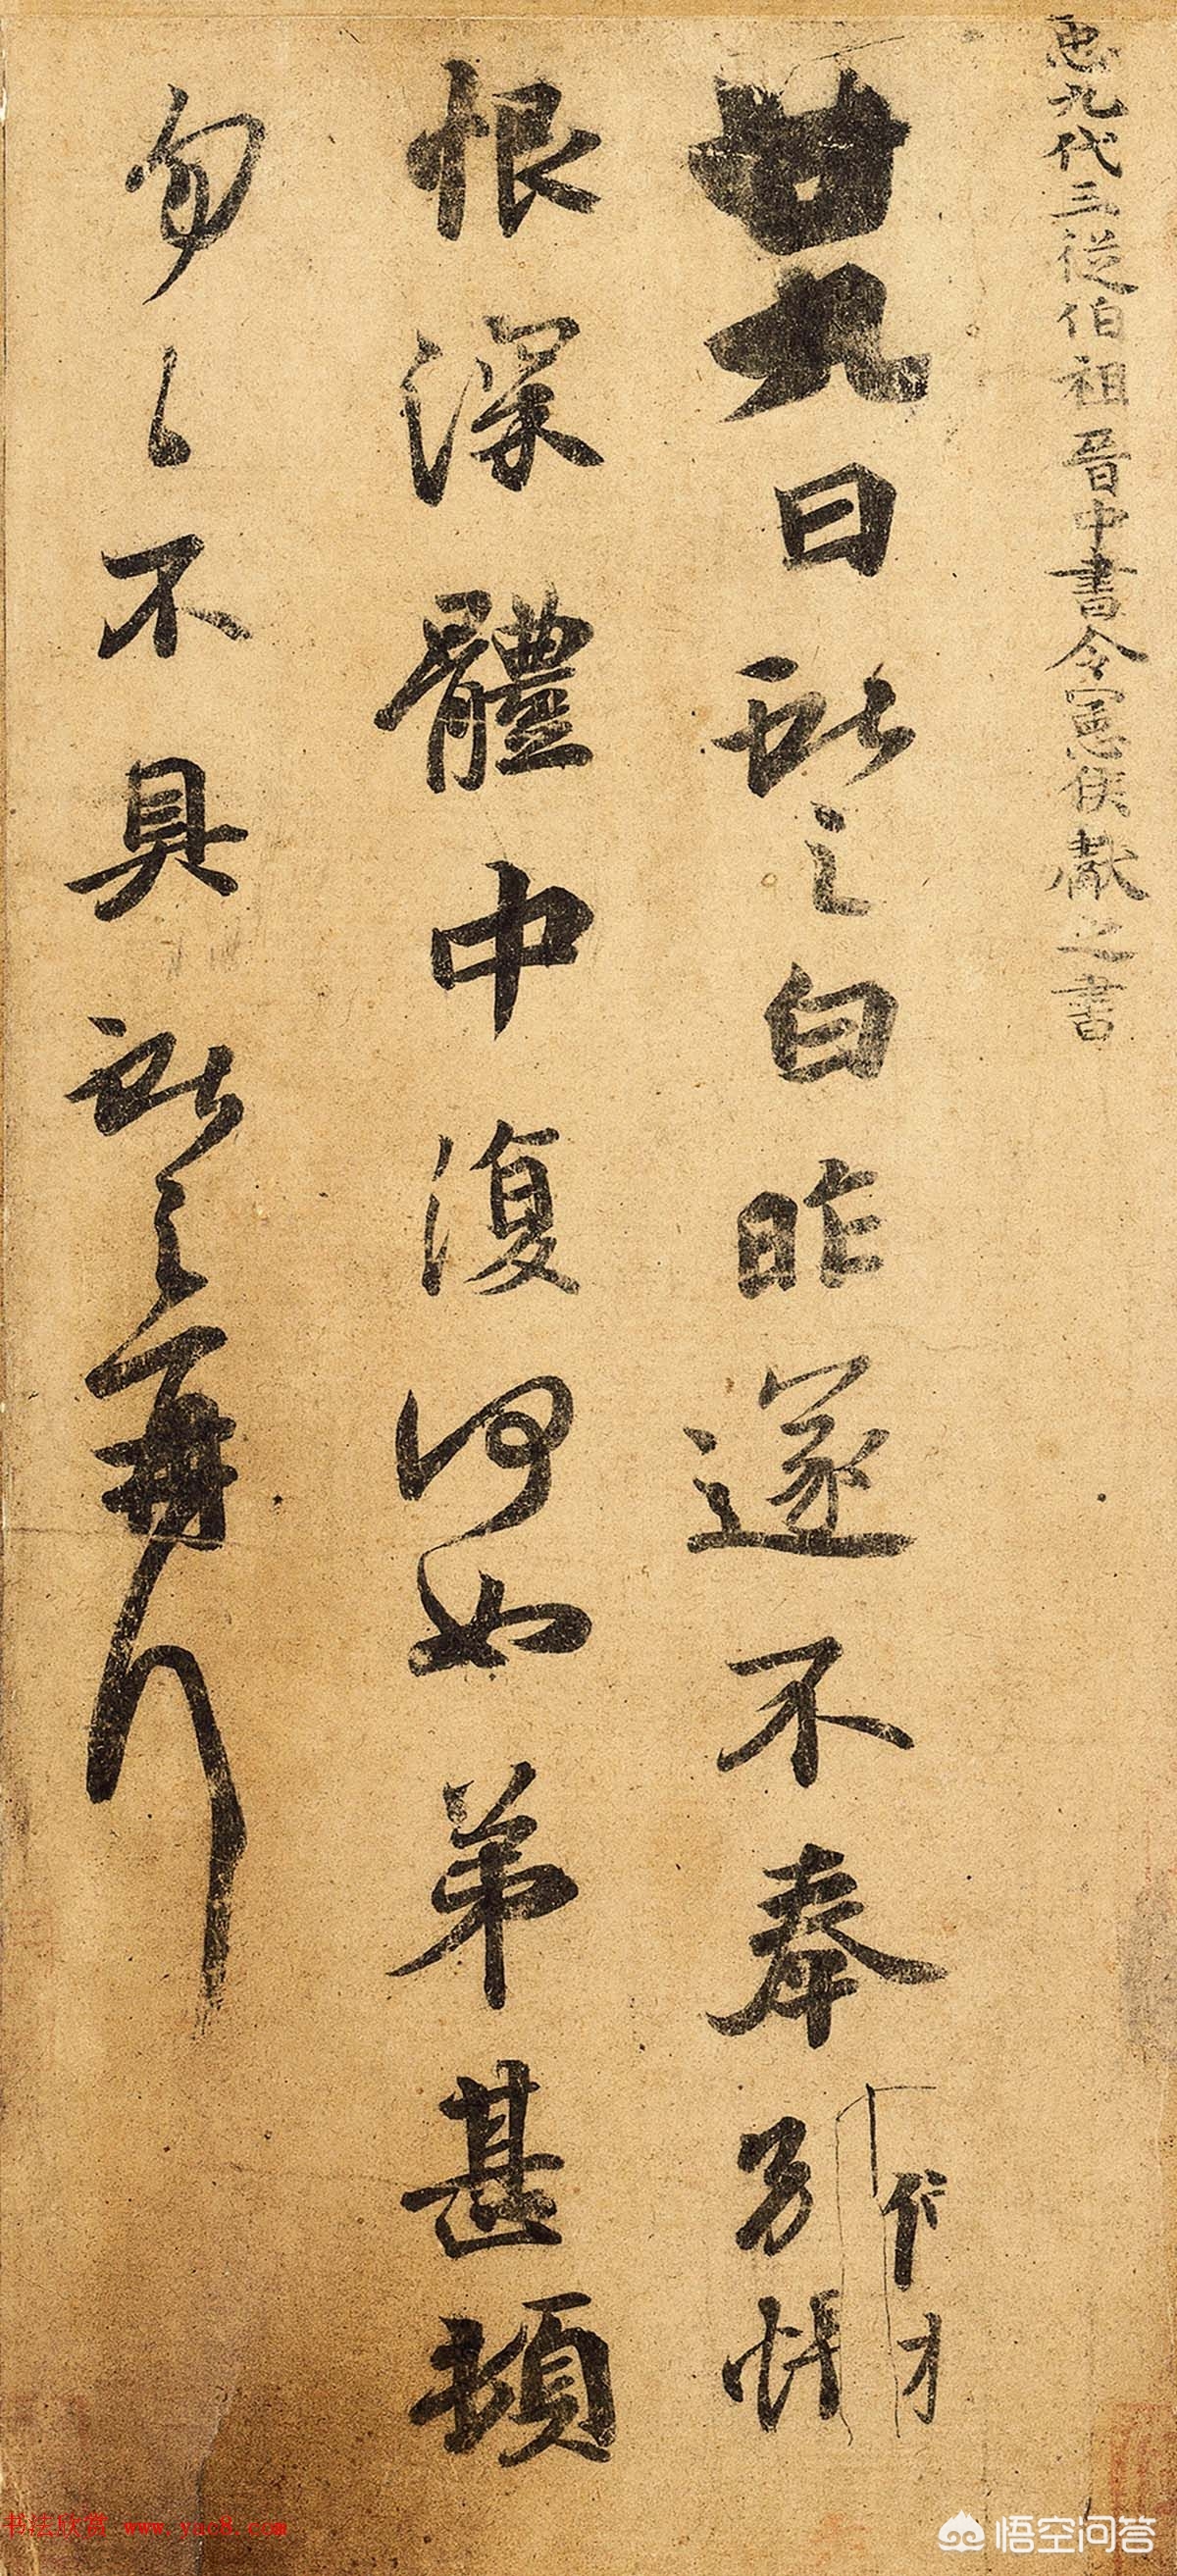 𢘑九代三從伯祖晉中書令憲侯獻之書
廿九日獻之白昨遂不奉別悵
恨深體中復何如弟甚頓
匆〻不具獻之再拜
书法欣赏 www.yac8.com
悟空问答